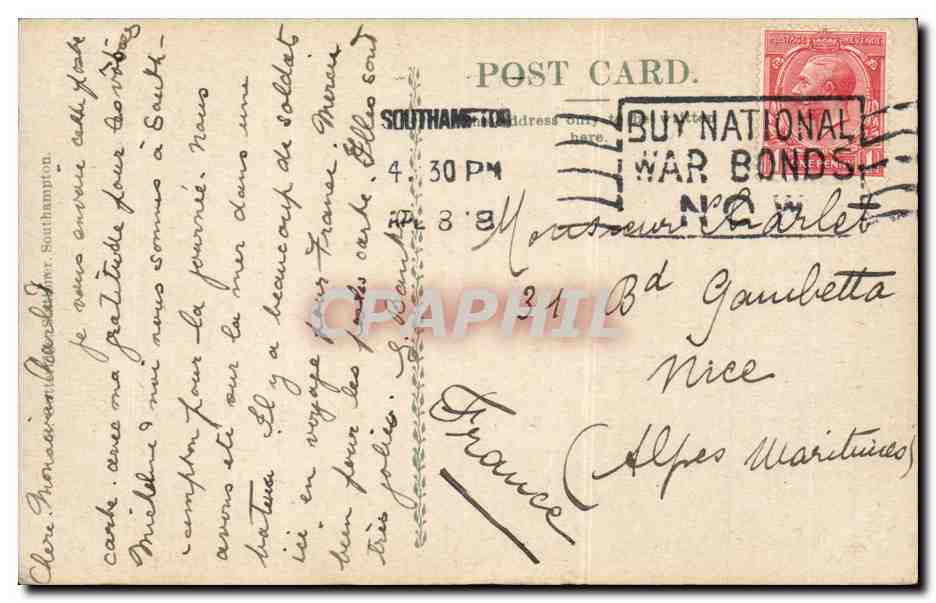 POST CARD.
The address only to be written
here.
SOUTHAMPTON
4. 30 PM
AP 8 18
BUY NATIONAL
WAR BONDS
NOW
POSTAGE REVENUE
ONE PENNY
Monsieur Charlet
31 Bd Gambetta
Nice
(Alpes Maritimes)
France
Southampton.
Chere Monsieur Charlet
je vous envoie cette poste
carte avec ma gratitude pour
Michel nous sommes à South-
-ampton pour la journée. Nous
avons eté sur la mer dans une
bateau Il y a beaucoup de soldats
ici en voyage pour France. Merci
bien pour les postes carte. Elles sont
très jolies.
CPAPHIL